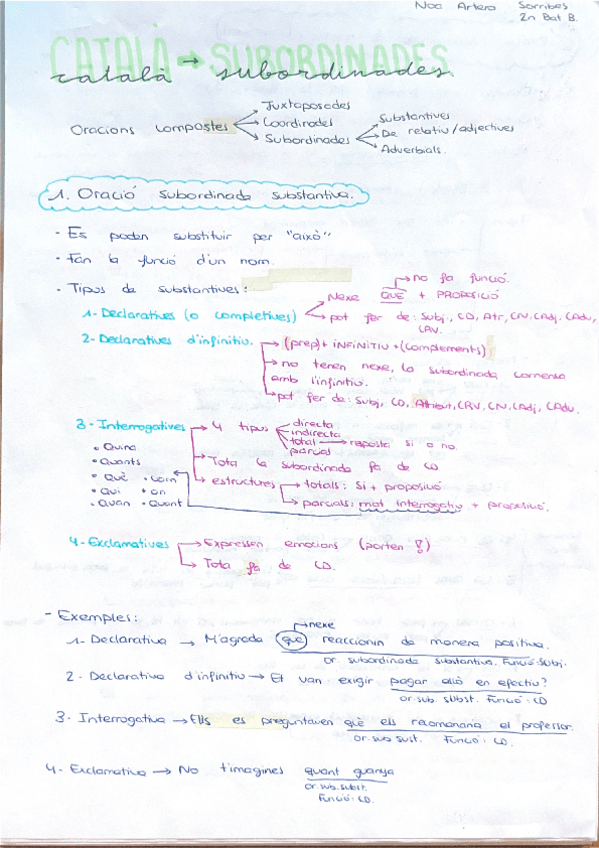 Noa Artero Sorribes
2n Bat B.
CATALÀ → SUBORDINADES
català subordinades.
Juxtaposades
Oracions compostes Coordinades
Subordinades
Substantives
De relatiu/adjectives
Adverbials.
1. Oració subordinada substantiva.
- Es poden substituir per "això"
- Fan la funció d'un nom.
- Tipus de substantives:
no fa funció.
1- Declaratives (o completives) Nexe QUE + PROPOSICIÓ
pot fer de: Subj, CD, Atr, CN, CAdj, CAdv, CRV.
2- Declaratives d'infinitiu. (prep)+ INFINITIU +(complements)
no tenen nexe, la subordinada comensa
amb l'infinitiu.
pot fer de: Subj, CD, Atribut, CRV, CN, CAdj, CAdv.
3- Interrogatives 4 tipus directa
indirecta
total → resposta si o no.
parcial
Tota la subordinada fa de CD
estructures totals: Si + proposició
parcials: mot interrogatiu + proposició.
• Quina
• Quants
• Què • com
• Qui • on
• Quan • Quant
4- Exclamatives Expressen emocions (porten !)
Tota fa de CD.
- Exemples:
nexe
1- Declarativa → M'agrada que reaccionin de manera positiva.
or. subordinada substantiva. Funció: Subj.
2- Declarativa d'infinitiu → Et van exigir pagar allò en efectiu?
or. sub. subst. Funció: CD
3- Interrogativa → Ells es preguntaven què els recomanaria el professor.
or. sub sust. Funció: CD.
4- Exclamativa → No t'imagines quant guanya
or. sub. subst.
Funció: CD.